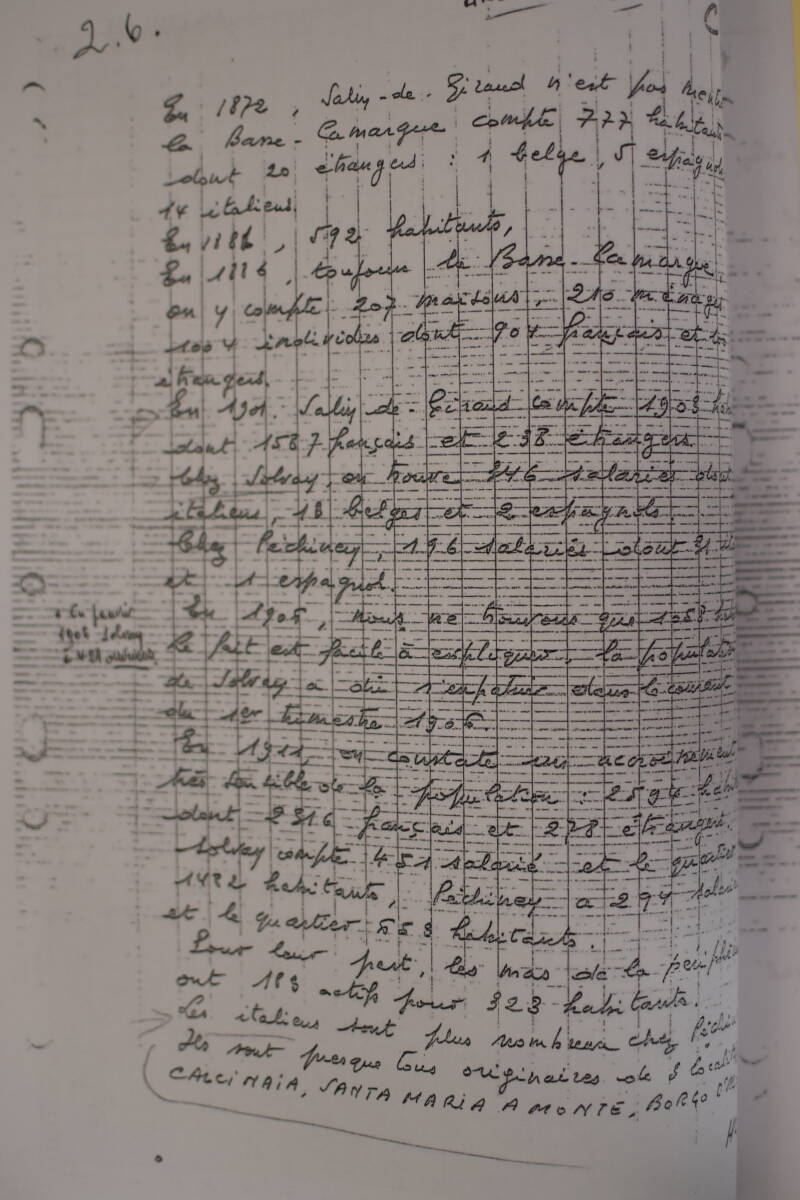 2.6.
En 1872, Salin-de-Giraud n'est pas
la Basse-Camargue compte 777 habitants
dont 20 étrangers : 1 belge, 5 espagnols
14 italiens.
En 1886, 592 habitants,
En 1896, toujours la Basse-Camargue,
on y compte 207 maisons, 210 ménages
1004 individus dont 904 français et
étrangers.
En 1901. Salin-de-Giraud compte 1903
dont 1587 français et 238 étrangers.
Chez Solvay, on trouve 346 salariés dont
italiens, 18 belges et 2 espagnols.
Chez Péchiney, 196 salariés dont 31
et 1 espagnol.
En 1906, nous ne trouvons que 1058
+ En janvier
1905 Solvay
Le fait est facile à expliquer, la population
de Solvay a dû s'expatrier dans le courant
du 1er trimestre 1906.
En 1911, on constate un accroissement
très sensible de la population : 2594
dont 2316 français et 278 étrangers.
Solvay compte 451 salarié et le quartier
1422 habitants, Péchiney a 294
et le quartier 553 habitants.
Pour leur part, les mas de la
ont 183 actifs pour 323 habitants.
Les italiens sont plus nombreux chez
Ils sont presque tous originaires de 3
CALCINAIA, SANTA MARIA A MONTE, BORGO